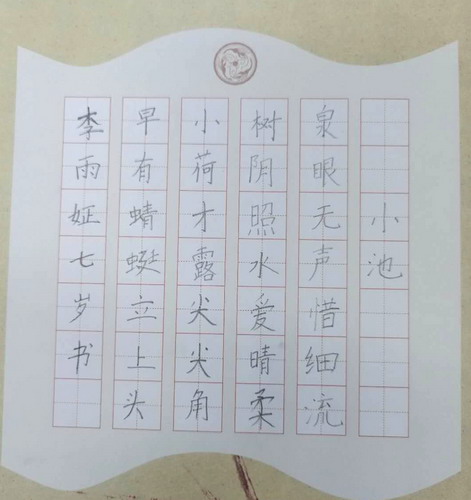 小池
泉眼无声惜细流
树阴照水爱晴柔
小荷才露尖尖角
早有蜻蜓立上头
李雨姃七岁书